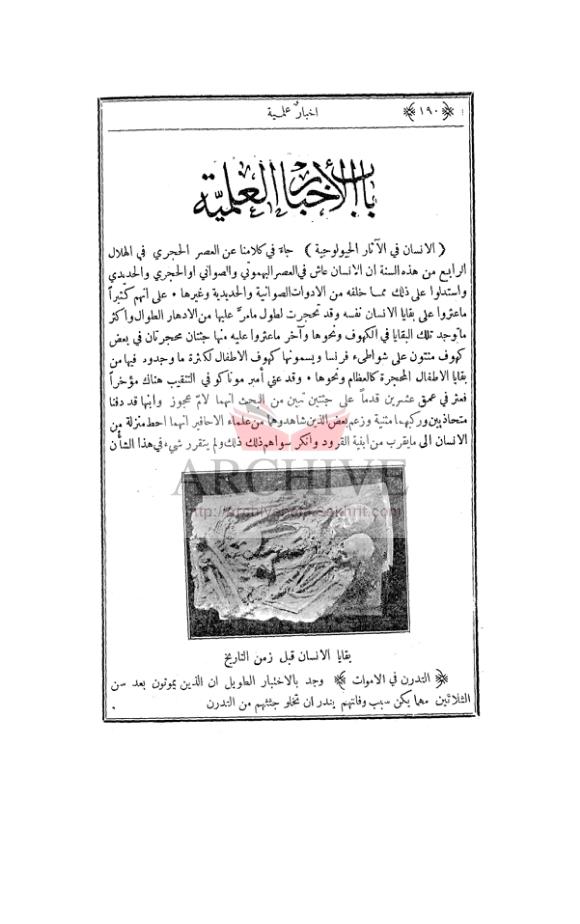 ﴿١٩٠﴾ اخبار علمية
باب الأخبار العلميَّة
( الانسان في الآثار الجيولوجية ) جاء في كلامنا عن العصر الحجري في الهلال
الرابع من هذه السنة ان الانسان عاش في العصر البهموثي والصواني او الحجري والحديدي
واستدلوا على ذلك مما خلفه من الادوات الصوانية والحديدية وغيرها • على انهم كثيراً
ما عثروا على بقايا الانسان نفسه وقد تحجرت لطول ما مرَّ عليها من الادهار الطوال واكثر
ما توجد تلك البقايا في الكهوف ونحوها وآخر ما عثروا عليه منها جثتان محجرتان في بعض
كهوف منتون على شواطىء فرنسا ويسمونها كهوف الاطفال لكثرة ما وجدوه فيها من
بقايا الاطفال المحجرة كالعظام ونحوها • وقد عني أمير موناكو في التنقيب هناك مؤخراً
فعثر في عمق عشرين قدماً على جثتين تبين من البحث انهما لامّ عجوز وابنها قد دفنا
متحاذيين وركبهما مثنية وزعم بعض الذين شاهدوها من علماء الاحافير انهما احط منزلة من
الانسان الى ما يقرب من ابنية القرود وانكر سواهم ذلك ولم يتقرر شيء في هذا الشأن
ARCHIVE
بقايا الانسان قبل زمن التاريخ
﴿ التدرن في الاموات ﴾ وجد بالاختبار الطويل ان الذين يموتون بعد سن
الثلاثين مهما يكن سبب وفاتهم يندر ان تخلو جثثهم من التدرن